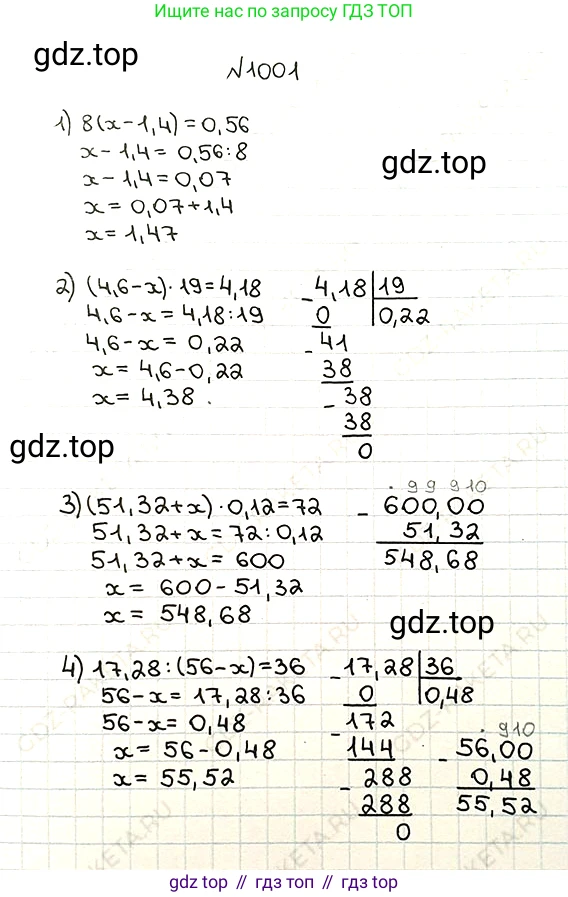 Ищите ответы по запросу ГДЗ ТОП
gdz.top
№1001
1) 8(x-1,4)=0,56
x-1,4=0,56:8
x-1,4=0,07
gdz.top
x=0,07+1,4
x=1,47
2) (4,6-x)·19=4,18
4,6-x=4,18:19
4,6-x=0,22
x=4,6-0,22
x=4,38.
- 4,18 | 19
0 0,22
- 41
38
- 38
38
0
gdz.top
3) (51,32+x)·0,12=72
51,32+x=72:0,12
51,32+x=600
x=600-51,32
x=548,68
. 9 9 9 10
- 600,00
51,32
548,68
gdz.top
4) 17,28:(56-x)=36
56-x=17,28:36
56-x=0,48
x=56-0,48
x=55,52
- 17,28 | 36
0 0,48
- 172
144
- 288
288
0
. 9 10
- 56,00
0,48
55,52
gdz.top // гдз топ // гдз.топ